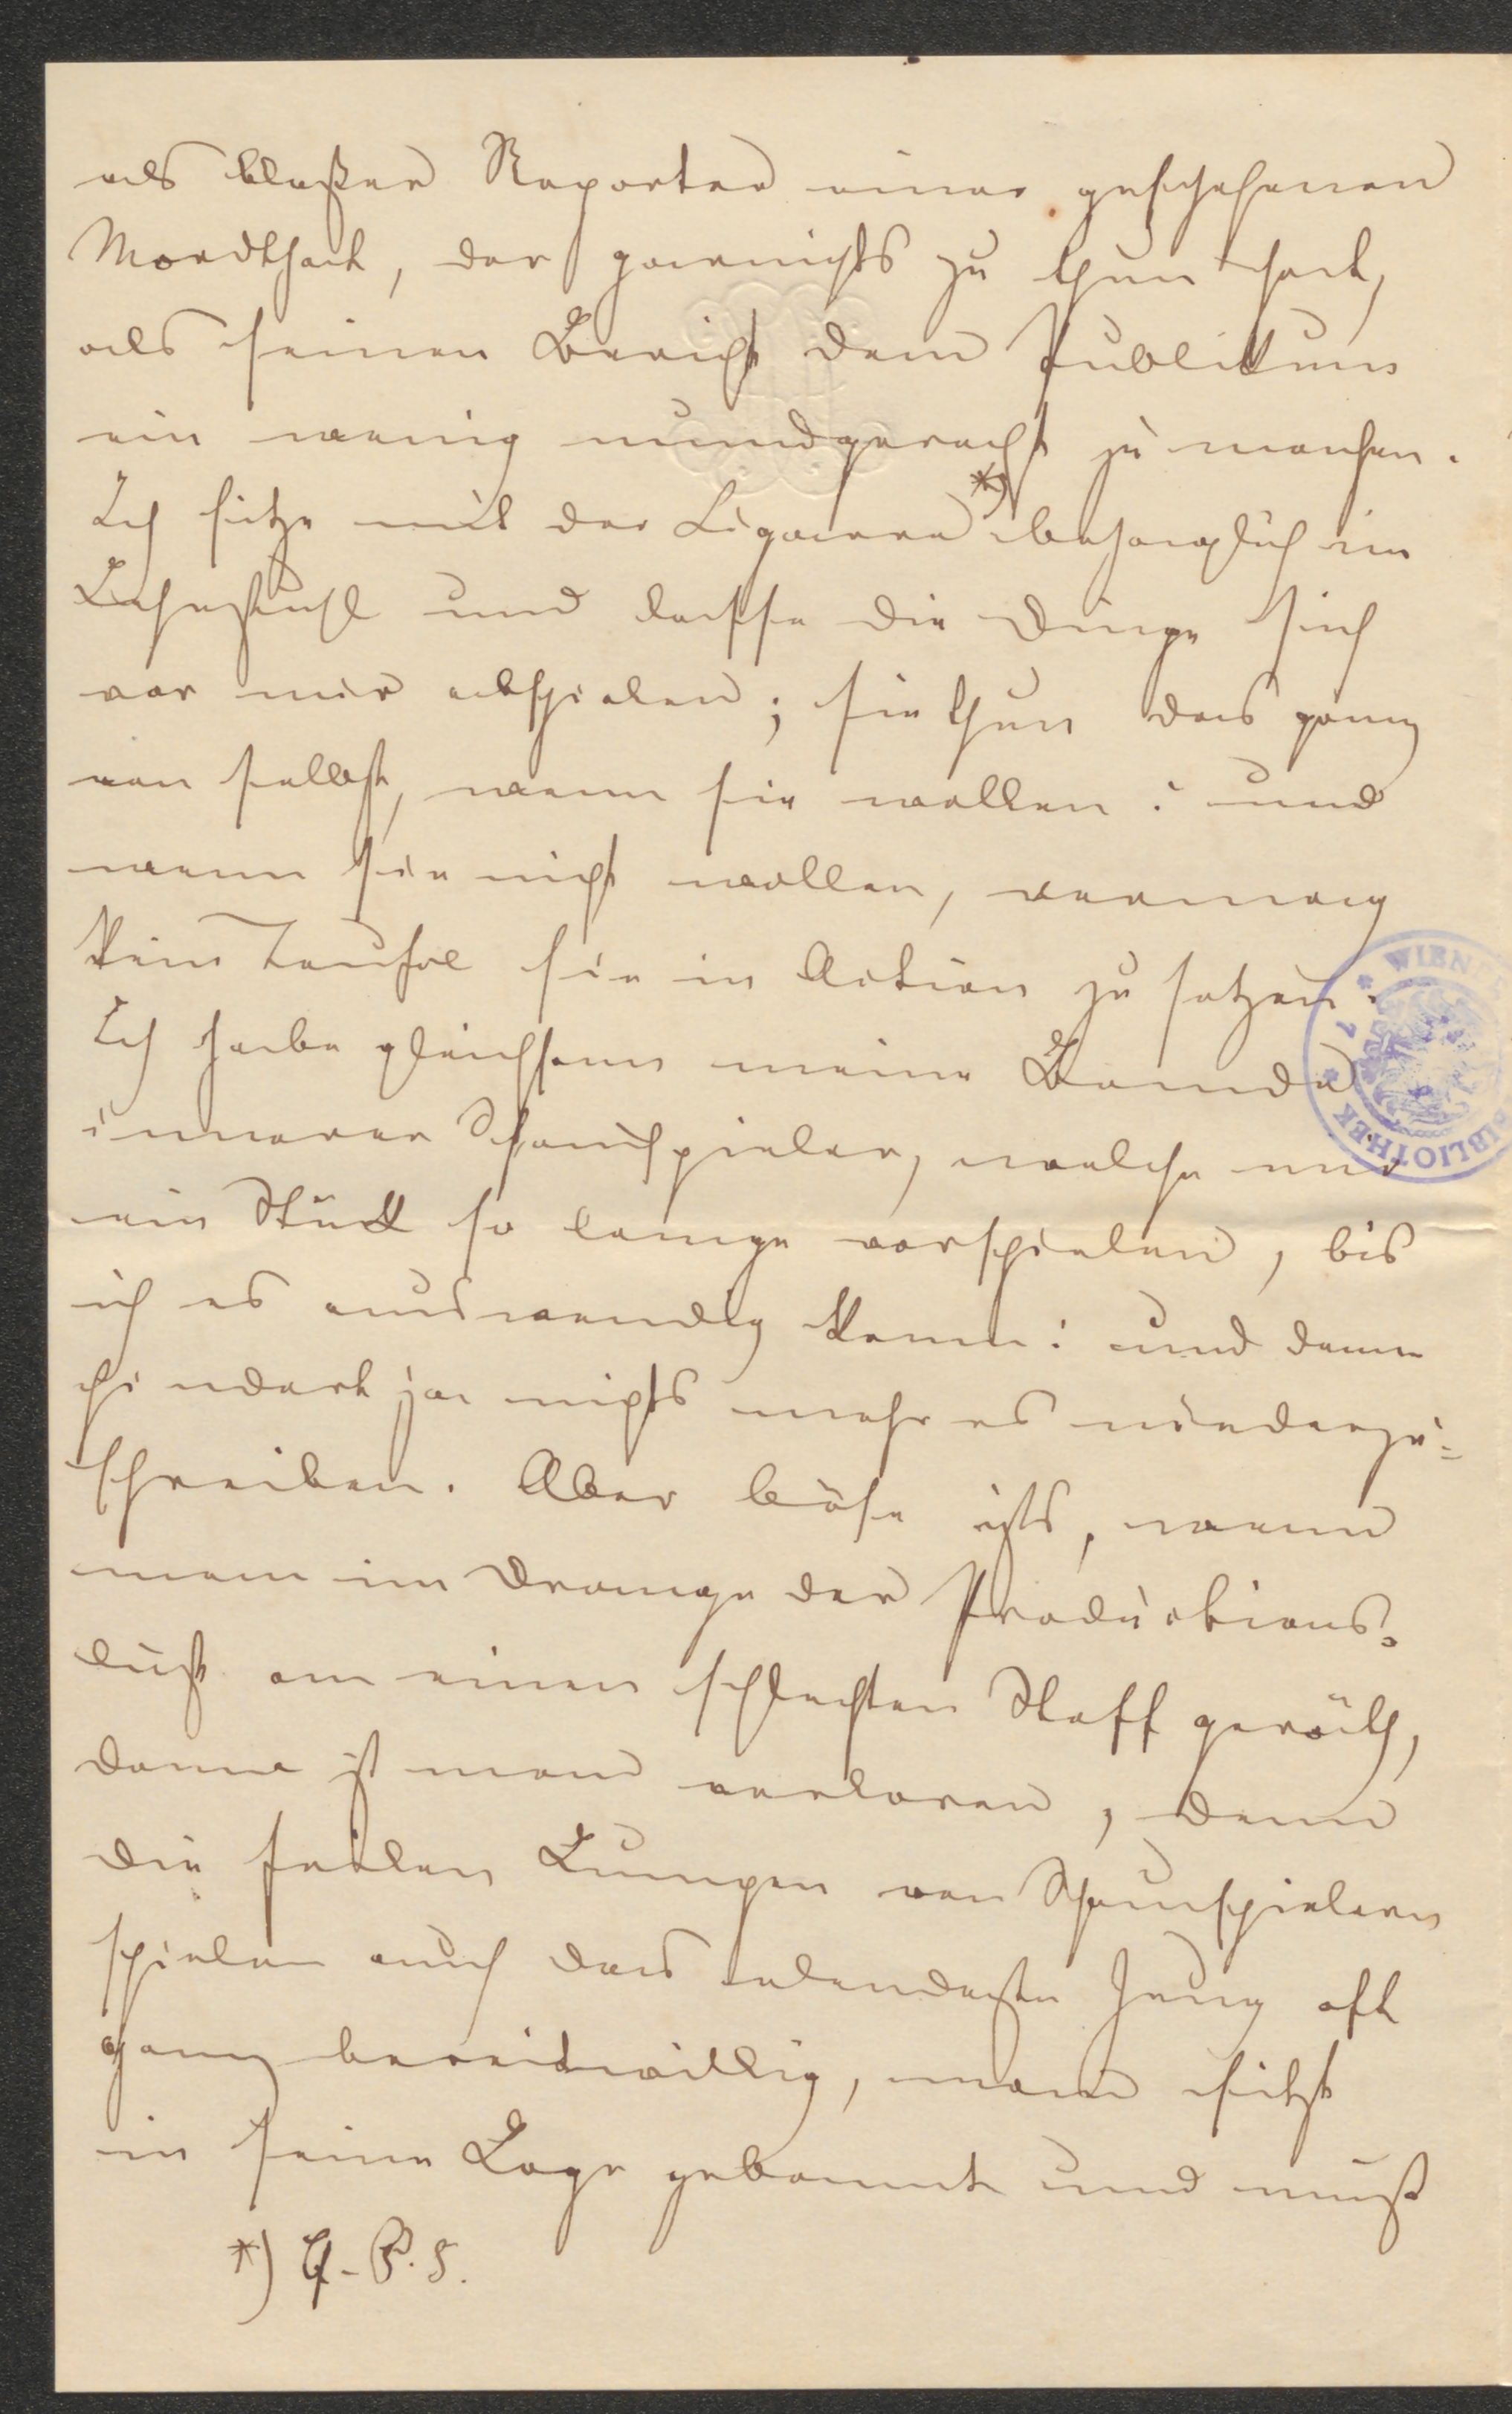 als bloßer Reporter einer geschehenen
Mordthat, der garnichts zu thun hat,
als seinen Bericht dem Publikum
ein wenig mundgerecht zu machen.
Ich sitze mit der Cigarre *) behaglich im
Lehnstuhl und lasse die Dinge sich
vor mir abspielen; sie thun das ganz
von selbst, wenn sie wollen: und
wenn sie nicht wollen, vermag
kein Teufel sie in Aktion zu setzen.
Ich habe gleichsam meine Bande
innerer Schauspieler, welche mir
ein Stück so lange vorspielen, bis
ich es auswendig kann: und dann
hindert ja nichts mehr es niederzu-
schreiben. Aber böse ists, wenn
man im Drange der Produktions-
lust an einen schlechten Stoff geräth,
dann ist man verloren, denn
die feilen Lumpen von Schauspielern
spielen auch das elendeste Zeug oft
ganz bereitwillig, man sitzt
in seine Loge gebannt und muß
WIEN
BIBLIOTHEK